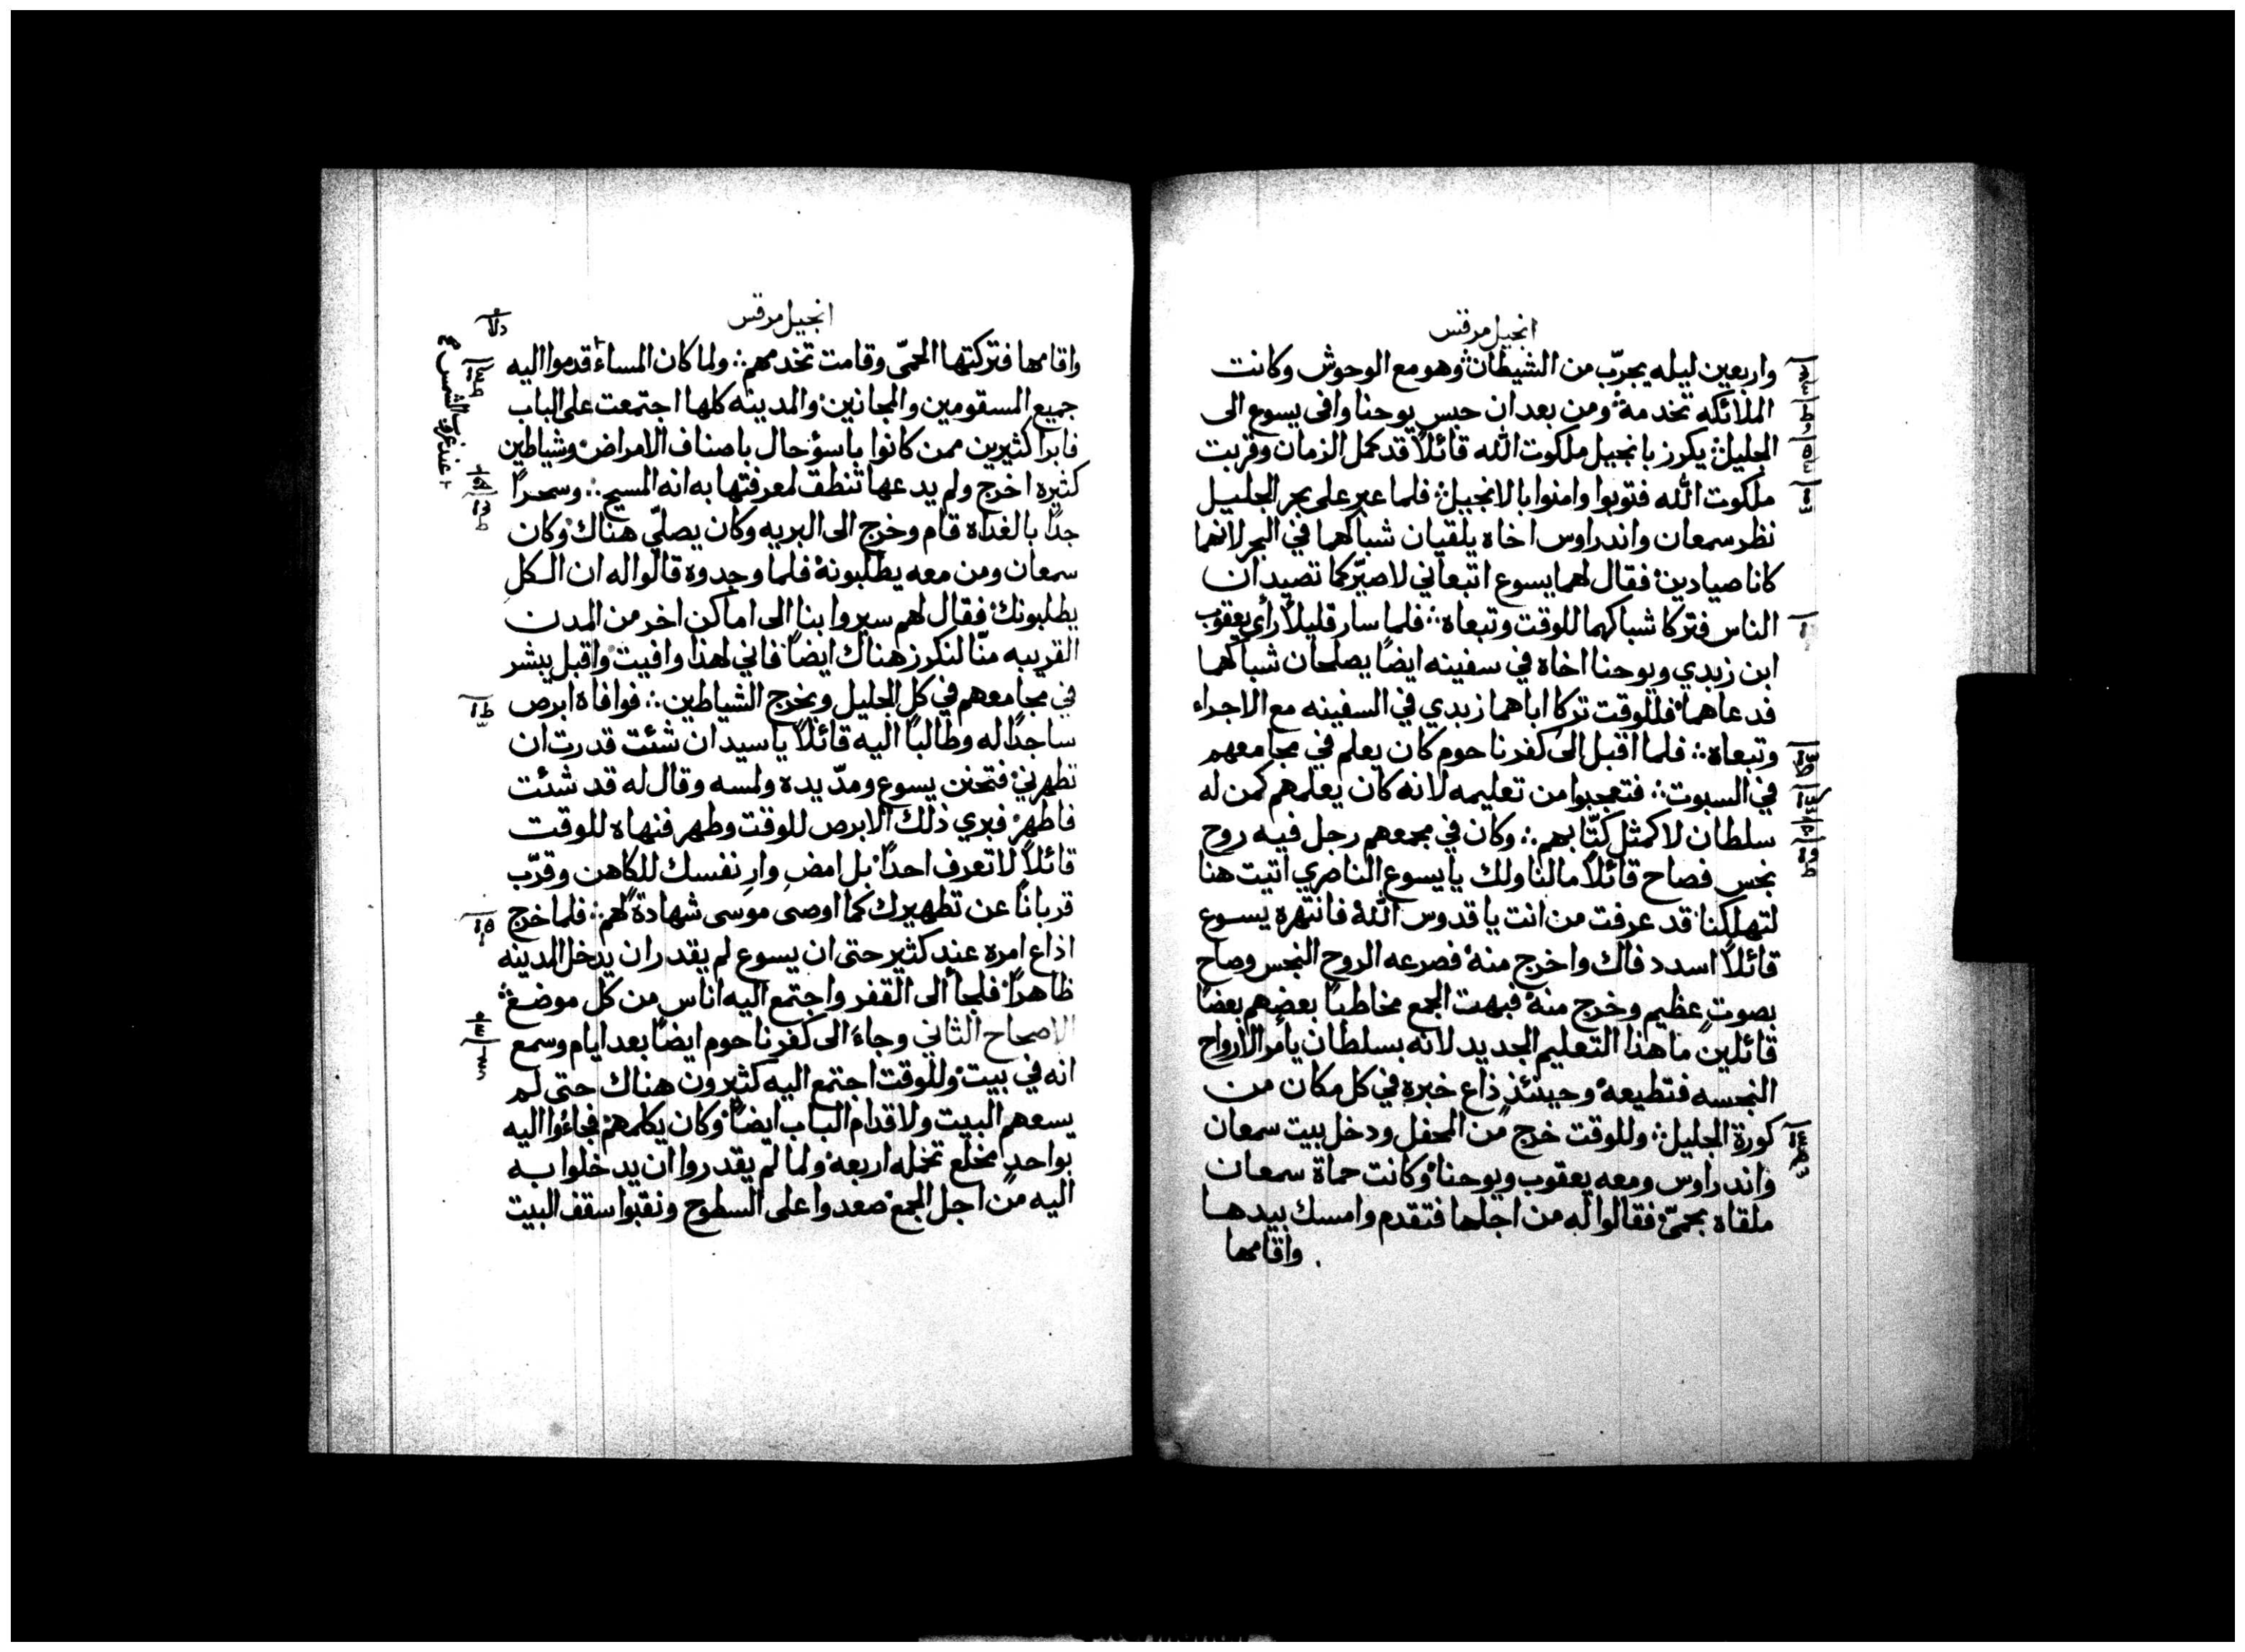 انجيل مرقس
واربعين ليله يجرّب من الشيطان وهو مع الوحوش وكانت
الملائكه تخدمه ومن بعد ان حبس يوحنا وافى يسوع الى
الجليل يكرز بانجيل ملكوت الله قائلاً قد كمل الزمان وقربت
ملكوت الله فتوبوا وامنوا بالانجيل فلما عبر على بحر الجليل
نظر سمعان واندراوس اخاه يلقيان شباكهما في البحر لانهما
كانا صيادين فقال لهما يسوع اتبعاني لاصيّركما تصيدان
الناس فتركا شباكهما للوقت وتبعاه فلما سار قليلاً رأى يعقوب
ابن زبدي ويوحنا اخاه في سفينه ايضًا يصلحان شباكهما
فدعاهما فللوقت تركا اباهما زبدي في السفينه مع الاجراء
وتبعاه فلما اقبل الى كفرناحوم كان يعلم في مجامعهم
في السبوت فتعجبوا من تعليمه لانه كان يعلمهم كمن له
سلطان لا كمثل كتّابهم وكان في مجمعهم رجل فيه روح
نجس فصاح قائلاً مالنا ولك يا يسوع الناصري اتيت هنا
لتهلكنا قد عرفت من انت يا قدوس الله فانتهره يسوع
قائلاً اسدد فاك واخرج منه فصرعه الروح النجس وصاح
بصوتٍ عظيم وخرج منه فبهت الجمع مخاطبًا بعضهم بعضًا
قائلين ما هذا التعليم الجديد لانه بسلطان يأمر الأرواح
النجسه فتطيعه وحينئذ ذاع خبره في كل مكان من
كورة الجليل وللوقت خرج من المحفل ودخل بيت سمعان
واندراوس ومعه يعقوب ويوحنا وكانت حماة سمعان
ملقاة بحمّى فقالوا له من اجلها فتقدم وامسك بيدها
واقامها
انجيل مرقس
واقامها فتركتها الحمّى وقامت تخدمهم ولما كان المساء قدموا اليه
جميع المسقومين والمجانين والمدينه كلها اجتمعت على الباب
فابرا كثيرين ممن كانوا باسوٴ حال باصناف الامراض وشياطين
كثيره اخرج ولم يدعها تنطق لمعرفتها به انه المسيح وسحرًا
جدًا بالغداه قام وخرج الى البريه وكان يصلّي هناك وكان
سمعان ومن معه يطلبونه فلما وجدوه قالوا له ان الكل
يطلبونك فقال لهم سيروا بنا الى اماكن اخر من المدن
القريبه منّا لنكرز هناك ايضًا فاني لهذا وافيت واقبل يبشر
في مجامعهم في كل الجليل ويخرج الشياطين فوافاه ابرص
ساجدًا له وطالبًا اليه قائلاً يا سيد ان شئت قدرت ان
تطهرني فتحنن يسوع ومدّ يده ولمسه وقال له قد شئت
فاطهر فبري ذلك الابرص للوقت وطهر فنهاه للوقت
قائلاً لا تعرف احدًا بل امضِ وارِ نفسك للكاهن وقرّب
قربانًا عن تطهيرك كما اوصى موسى شهادة لهم فلما خرج
اذاع امره عند كثير حتى ان يسوع لم يقدر ان يدخل المدينه
ظاهرًا فلجأ الى القفر واجتمع اليه اناس من كل موضع
الاصحاح الثاني وجاء الى كفرناحوم ايضًا بعد ايام وسمع
انه في بيت وللوقت اجتمع اليه كثيرون هناك حتى لم
يسعهم البيت ولا قدام الباب ايضًا وكان يكلمهم فجاءوا اليه
بواحدٍ مخلع تحمله اربعه ولما لم يقدروا ان يدخلوا به
اليه من اجل الجمع صعدوا على السطوح ونقبوا سقف البيت
عند غروب الشمس